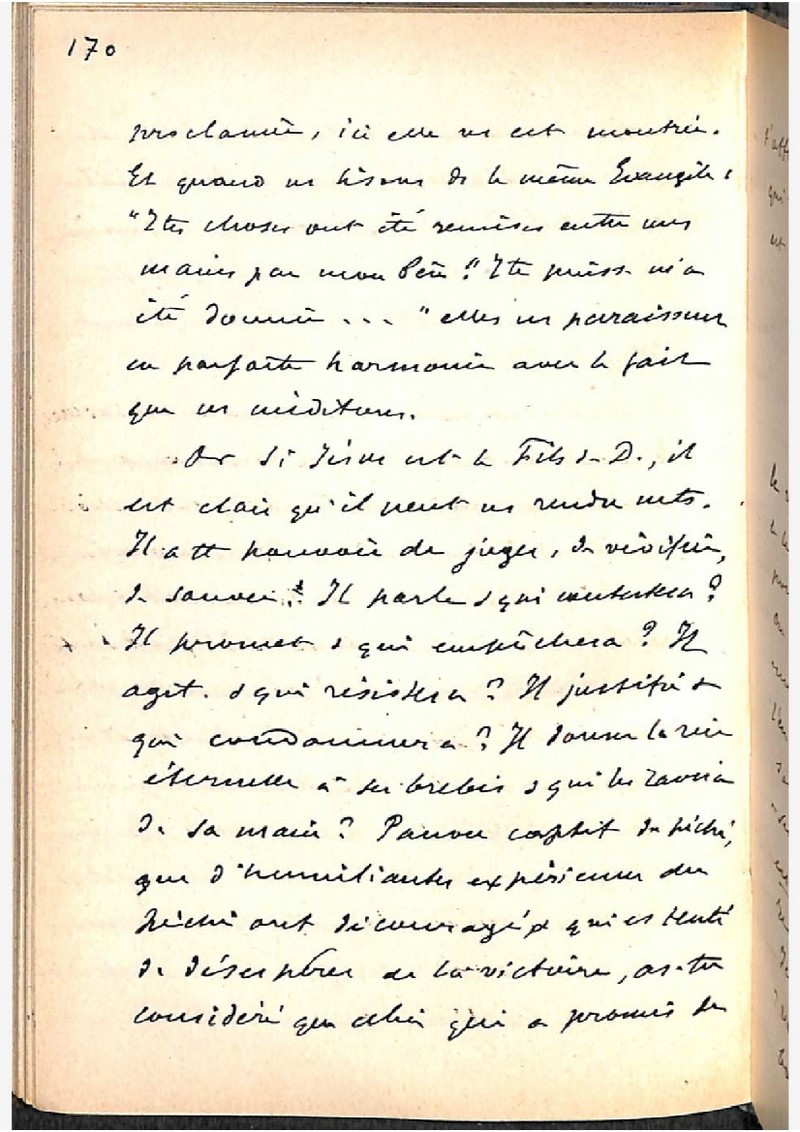 170
proclamée, ici elle ns est montrée.
Et quand ns lisons ds le même Evangile :
"Ttes choses ont été remises entre mes
mains par mon Père" "Tte puiss. m'a
été donnée ... " elles ns paraissent
en parfaite harmonie avec le fait
que ns méditons.
Or si Jésus est le Fils de D., il
est clair qu'il peut ns rendre nets.
Il a tt pouvoir de juger, de vivifier,
de sauver. Il parle & qui contestera ?
Il promet & qui empêchera ? Il
agit & qui résistera ? Il justifie &
qui condamnera ? Il donne la vie
éternelle à ses brebis & qui les ravira
de sa main ? Pauvre captif du péché,
que d'humiliantes expériences du
péché ont découragé & qui es tenté
de désespérer de la victoire, as-tu
considéré que celui qui a promis de